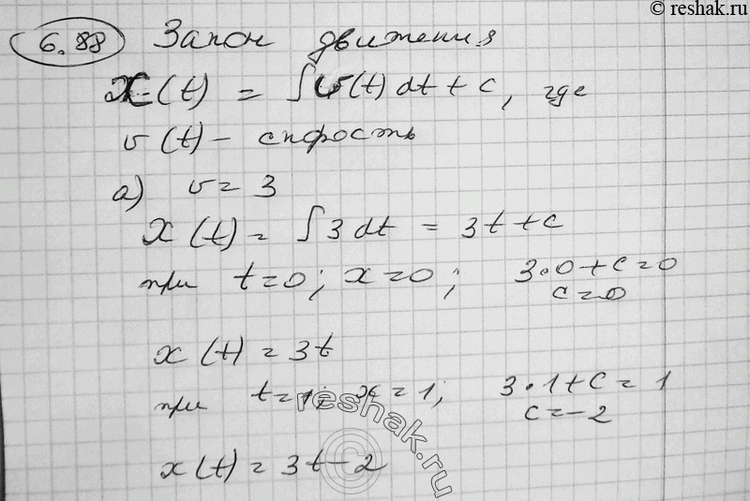 © reshak.ru
6.88 Закон движения
x(t) = ∫v(t) dt + c, где
v(t) - скорость
а) v = 3
x(t) = ∫3 dt = 3t + c
при t=0; x=0; 3•0+c=0
c=0
x(t) = 3t
при t=1; x=1; 3•1+c=1
c=-2
x(t) = 3t-2
reshak.ru